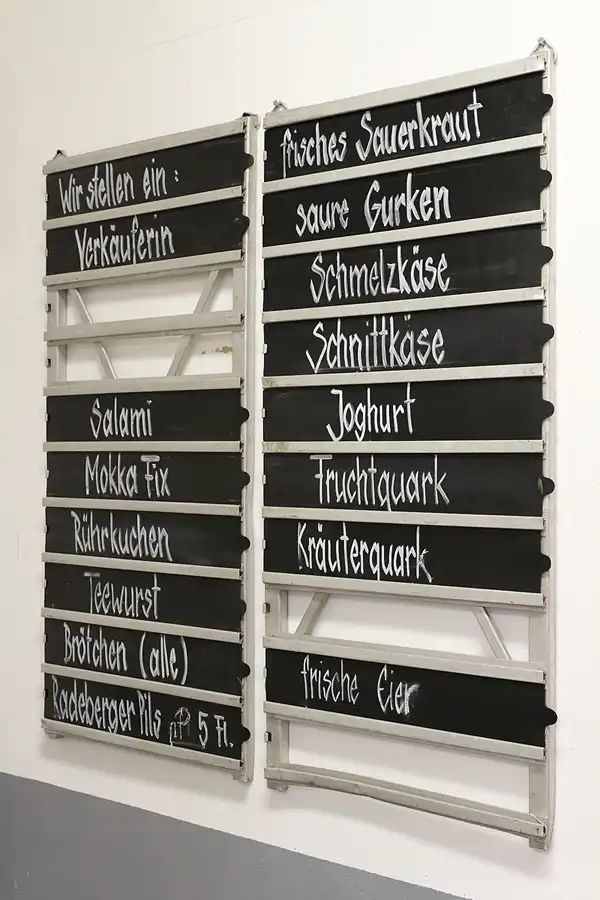 Wir stellen ein:
Verkäuferin
Salami
Mokka Fix
Rührkuchen
Teewurst
Brötchen (alle)
Radeberger Pils 5 Fl.
frisches Sauerkraut
saure Gurken
Schmelzkäse
Schnittkäse
Joghurt
Fruchtquark
Kräuterquark
frische Eier